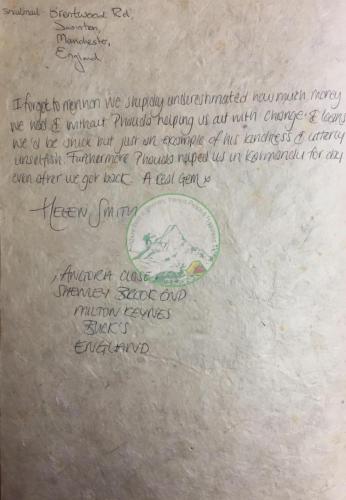 snailmail Brentwood Rd,
Swinton,
Manchester,
England
I forgot to mention we stupidly underestimated how much money
we had & without helping us out with change & loans
we'd be stuck but just an example of his kindness & utterly
unselfish. Furthermore helped us in Katmandu for day
even after we got back. A real Gem
HELEN SMITH
ANGORA CLOSE
SHENLEY BROOK END
MILTON KEYNES
BUCK'S
ENGLAND